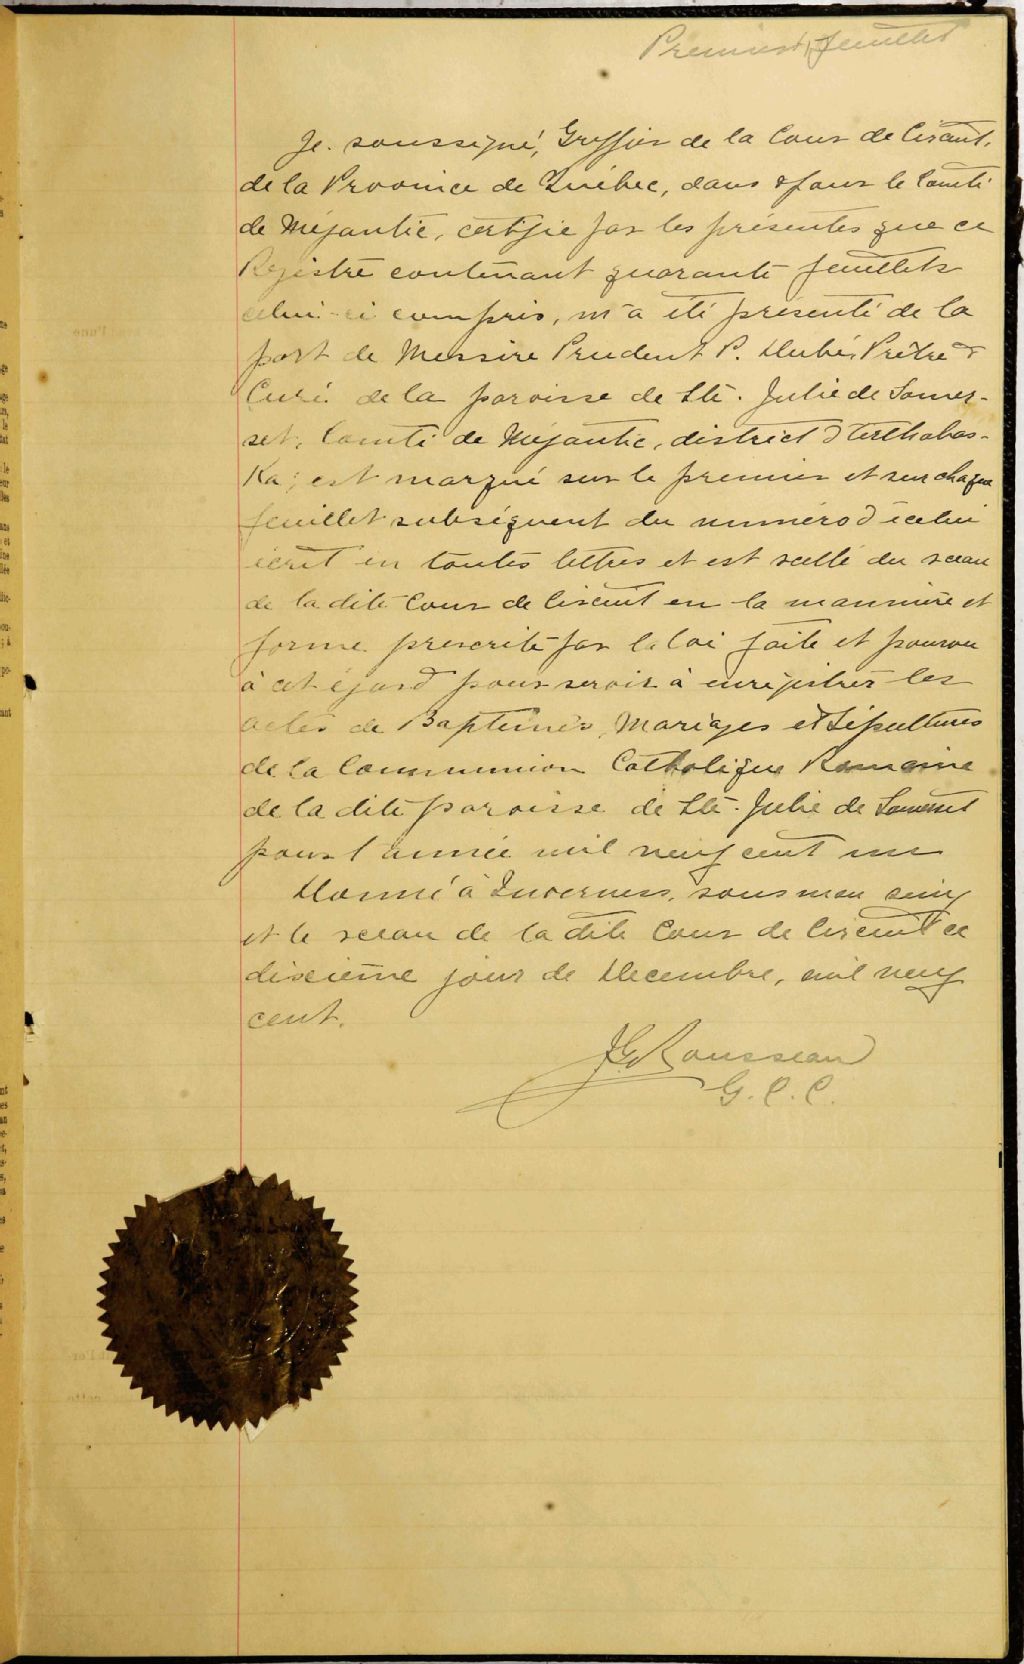 Premier feuillet
Je soussigné, Greffier de la Cour de Circuit,
de la Province de Québec, dans & pour le Comté
de Mégantic, certifie par les présentes que ce
Registre contenant quarante feuillets
celui-ci compris, m'a été présenté de la
part de Messire Prudent P. Dubé, Prêtre &
Curé de la paroisse de Ste. Julie de Somer-
set, Comté de Mégantic, district d'Arthabas-
Ka; est marqué sur le premier et sur chaque
feuillet subséquent du numéro d'icelui
écrit en toutes lettres et est scellé du sceau
de la dite Cour de Circuit en la mannière et
forme prescrite par la loi faite et pourvu
à cet égard pour servir à enregistrer les
actes de Baptêmes, Mariages et Sépultures
de la Communion Catholique Romaine
de la dite paroisse de Ste. Julie de Somerset
pour l'année mil neuf cent un
Donné à Inverness, sous mon seing
et le sceau de la dite Cour de Circuit ce
dixième jour de Decembre, mil neuf
cent.
JG Rousseau
G. C. C.